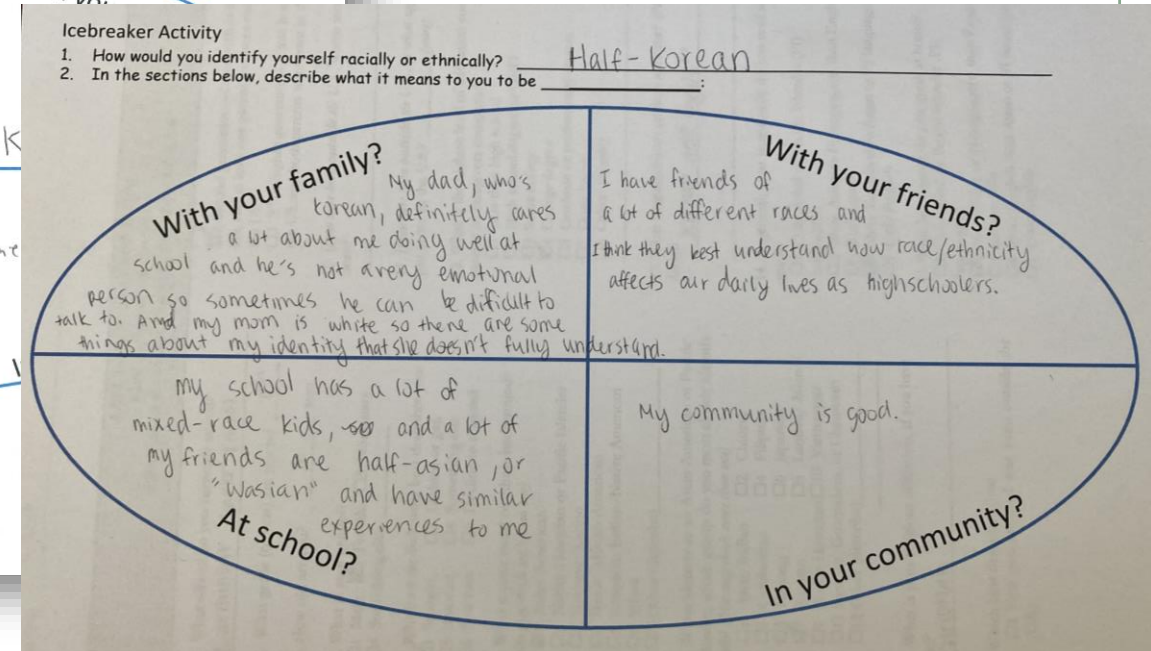 Icebreaker Activity
1. How would you identify yourself racially or ethnically? Half-Korean
2. In the sections below, describe what it means to you to be ____________:
With your family?
My dad, who's
korean, definitely cares
a lot about me doing well at
school and he's not a very emotional
person so sometimes he can be dificult to
talk to. And my mom is white so there are some
things about my identity that she doesn't fully understand.
With your friends?
I have friends of
a lot of different races and
I think they best understand how race/ethnicity
affects our daily lives as highschoolers.
my school has a lot of
mixed-race kids, and a lot of
my friends are half-asian, or
"Wasian" and have similar
experiences to me
At school?
My community is good.
In your community?